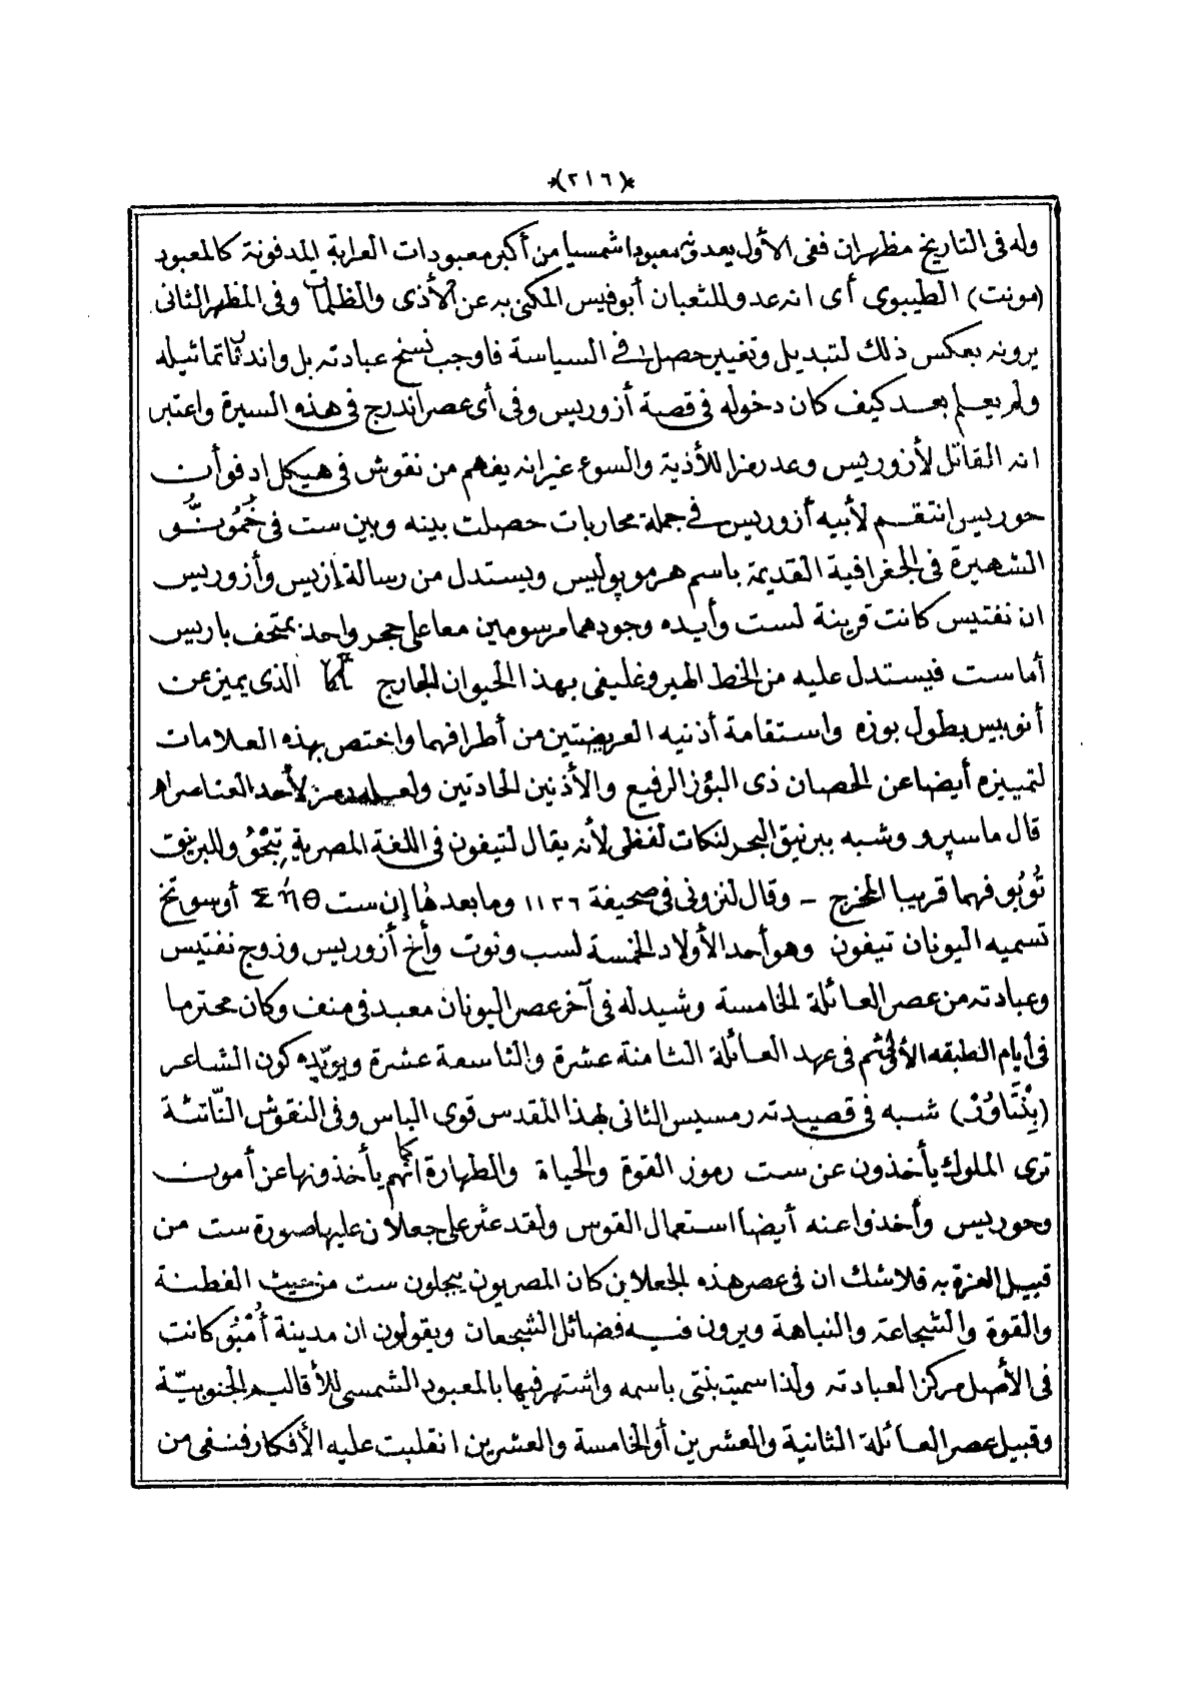 *(٢١٦)*
وله فى التاريخ مظهران ففى الأول يعدونه معبودا شمسيا من أكبر معبودات العرابة المدفونة كالمعبود
(مونت) الطيبوى أى انه عدو للثعبان أبوفيس المكنى به عن الأذى والظلمات وفى المظهر الثانى
يرونه بعكس ذلك لتبديل وتغيير حصل فى السياسة فاوجب نسخ عبادته بل واندثار تماثيله
ولم يعلم بعد كيف كان دخوله فى قصة أزوريس وفى أى عصر اندرج فى هذه السيرة واعتبر
انه القاتل لأزوريس وعد رمزا للأذية والسوء غير انه يفهم من نقوش فى هيكل ادفو أن
حوريس انتقم لأبيه أزوريس فى جملة محاربات حصلت بينه وبين ست فى خُمُونُّو
الشهيرة فى الجغرافية القديمة باسم هرموپوليس ويستدل من رسالة إزيس وأزوريس
ان نفتيس كانت قرينة لست وأيده وجودهما مرسومين معا على حجر واحد بمتحف باريس
أما ست فيستدل عليه من الخط الهيروغليفى بهذا الحيوان الجارح الذى يميز عن
أنوبيس بطول بوزه واستقامة أذنيه العريضتين من أطرافهما واختص بهذه العلامات
لتمييزه أيضا عن الحصان ذى البؤز الرفيع والأذنين الحادتين ولعله رمز لأحد العناصر اه
قال ماسپرو وشبه ببرنيق البحر لنكات لفظى لأنه يقال لتيفون فى اللغة المصرية تِبْحُو وللبرنيق
تُوبُو فهما قريبا المخرج — وقال لنزونى فى صحيفة ١١٢٦ وما بعدها إن ست Σήθ أو سوتخ
تسميه اليونان تيفون وهو أحد الأولاد الخمسة لسب ونوت وأخ أزوريس وزوج نفتيس
وعبادته من عصر العائلة الخامسة وشيد له فى آخر عصر اليونان معبد فى منف وكان محترما
فى أيام الطبقه الأولى ثم فى عهد العائلة الثامنة عشرة والتاسعة عشرة ويؤيده كون الشاعر
(بِنْتَاوُرْ) شبه فى قصيدته رمسيس الثانى بهذا المقدس قوى الباس وفى النقوش الناتئة
ترى الملوك يأخذون عن ست رموز القوة والحياة والطهارة كما أنهم يأخذونها عن أمون
وحوريس وأخذوا عنه أيضا استعمال القوس ولقد عثر على جعلان عليها صورة ست من
قبيل العزة به فلا شك ان فى عصر هذه الجعلان كان المصريون يبجلون ست من حيث الفطنة
والقوة والشجاعة والنباهة ويرون فيه فضائل الشجعان ويقولون ان مدينة أُمْبُو كانت
فى الأصل مركزا لعبادته ولذا سميت بنتى باسمه واشتهر فيها بالمعبود الشمسى للأقاليم الجنوبيّة
وقبيل عصر العائلة الثانية والعشرين أو الخامسة والعشرين انقلبت عليه الأفكار فنفى من